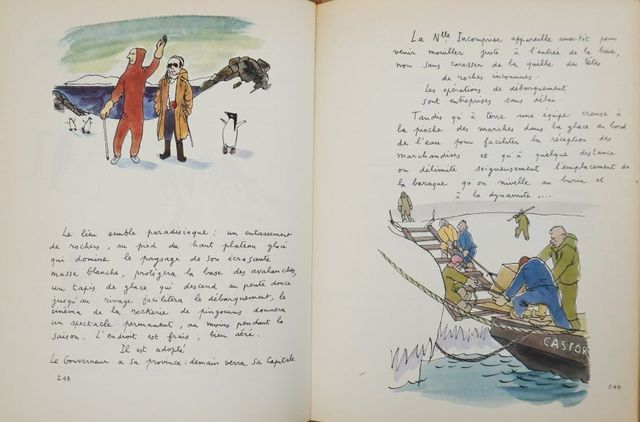 Le lieu semble paradisiaque : un entassement
de rochers, au pied du haut plateau glacé
qui domine le paysage de son écrasante
masse blanche, protègera la base des avalanches,
un tapis de glace qui descend en pente douce
jusqu'au rivage facilitera le débarquement, le
cinéma de la rockerie de pingouins donnera
un spectacle permanent, au moins pendant la
saison. L'endroit est frais, bien aéré.
Il est adopté.
Le Gouverneur a sa province ; demain verra sa Capitale.
248
La Nlle Incomprise appareille aussitôt pour
venir mouiller juste à l'entrée de la baie,
non sans caresser de la quille des têtes
de roches inconnues.
Les opérations de débarquement
sont entreprises sans délai.
Tandis qu'à terre une équipe creuse à
la pioche des marches dans la glace au bord
de l'eau pour faciliter la réception des
marchandises et qu'à quelque distance
on délimite soigneusement l'emplacement de
la baraque qu'on nivelle au burin et
à la dynamite ....
CASTOR
249